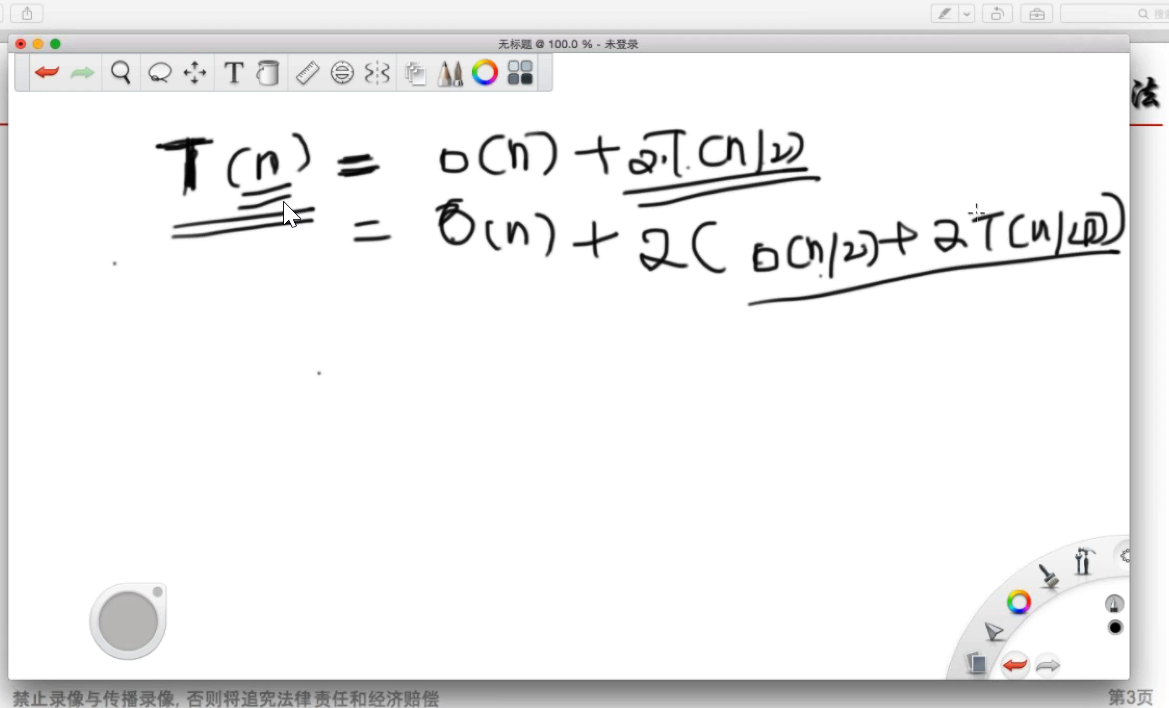 搜索
无标题 @ 100.0 % - 未登录
T
法
T(n) = O(n) + 2T(n/2)
= O(n) + 2(O(n/2) + 2T(n/4))
禁止录像与传播录像, 否则将追究法律责任和经济赔偿
第3页